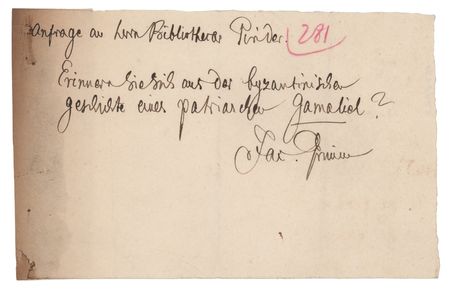 Anfrage an Herrn Bibliothecar Pinder. 281
Erinnern Sie Sich aus der byzantinischen
geschichte eines patriarchen Gamaliel?
Jac. Grimm